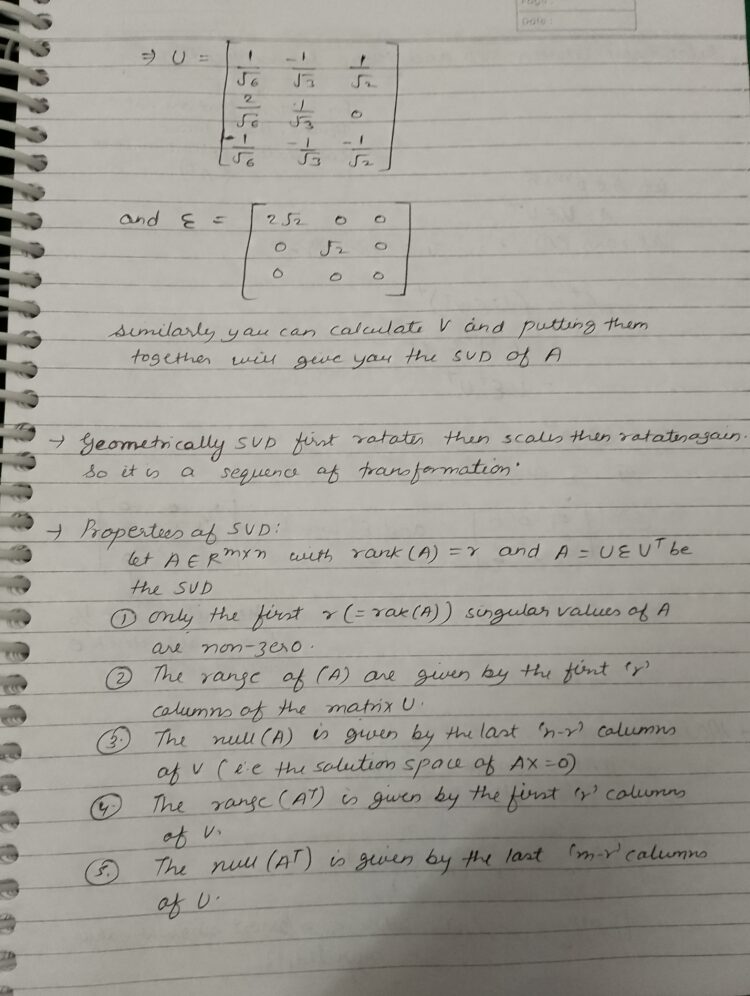 Page:
Date:
⇒ U = [ 1/√6 -1/√3 1/√2
2/√6 1/√3 0
-1/√6 -1/√3 -1/√2 ]
and Ɛ = [ 2√2 0 0
0 √2 0
0 0 0 ]
similarly you can calculate V and putting them
together will give you the SVD of A
→ Geometrically SVD first rotates then scales then rotates again.
So it is a sequence of transformation.
→ Properties of SVD:
let A ∈ R^mxn with rank (A) = r and A = UƐV^T be
the SVD
① only the first r (= rak(A)) singular values of A
are non-zero.
② The range of (A) are given by the first 'r'
columns of the matrix U.
③. The null (A) is given by the last 'n-r' columns
of V (i.e the solution space of AX=0)
④. The range (A^T) is given by the first 'r' columns
of V.
⑤. The null (A^T) is given by the last 'm-r' columns
of U.